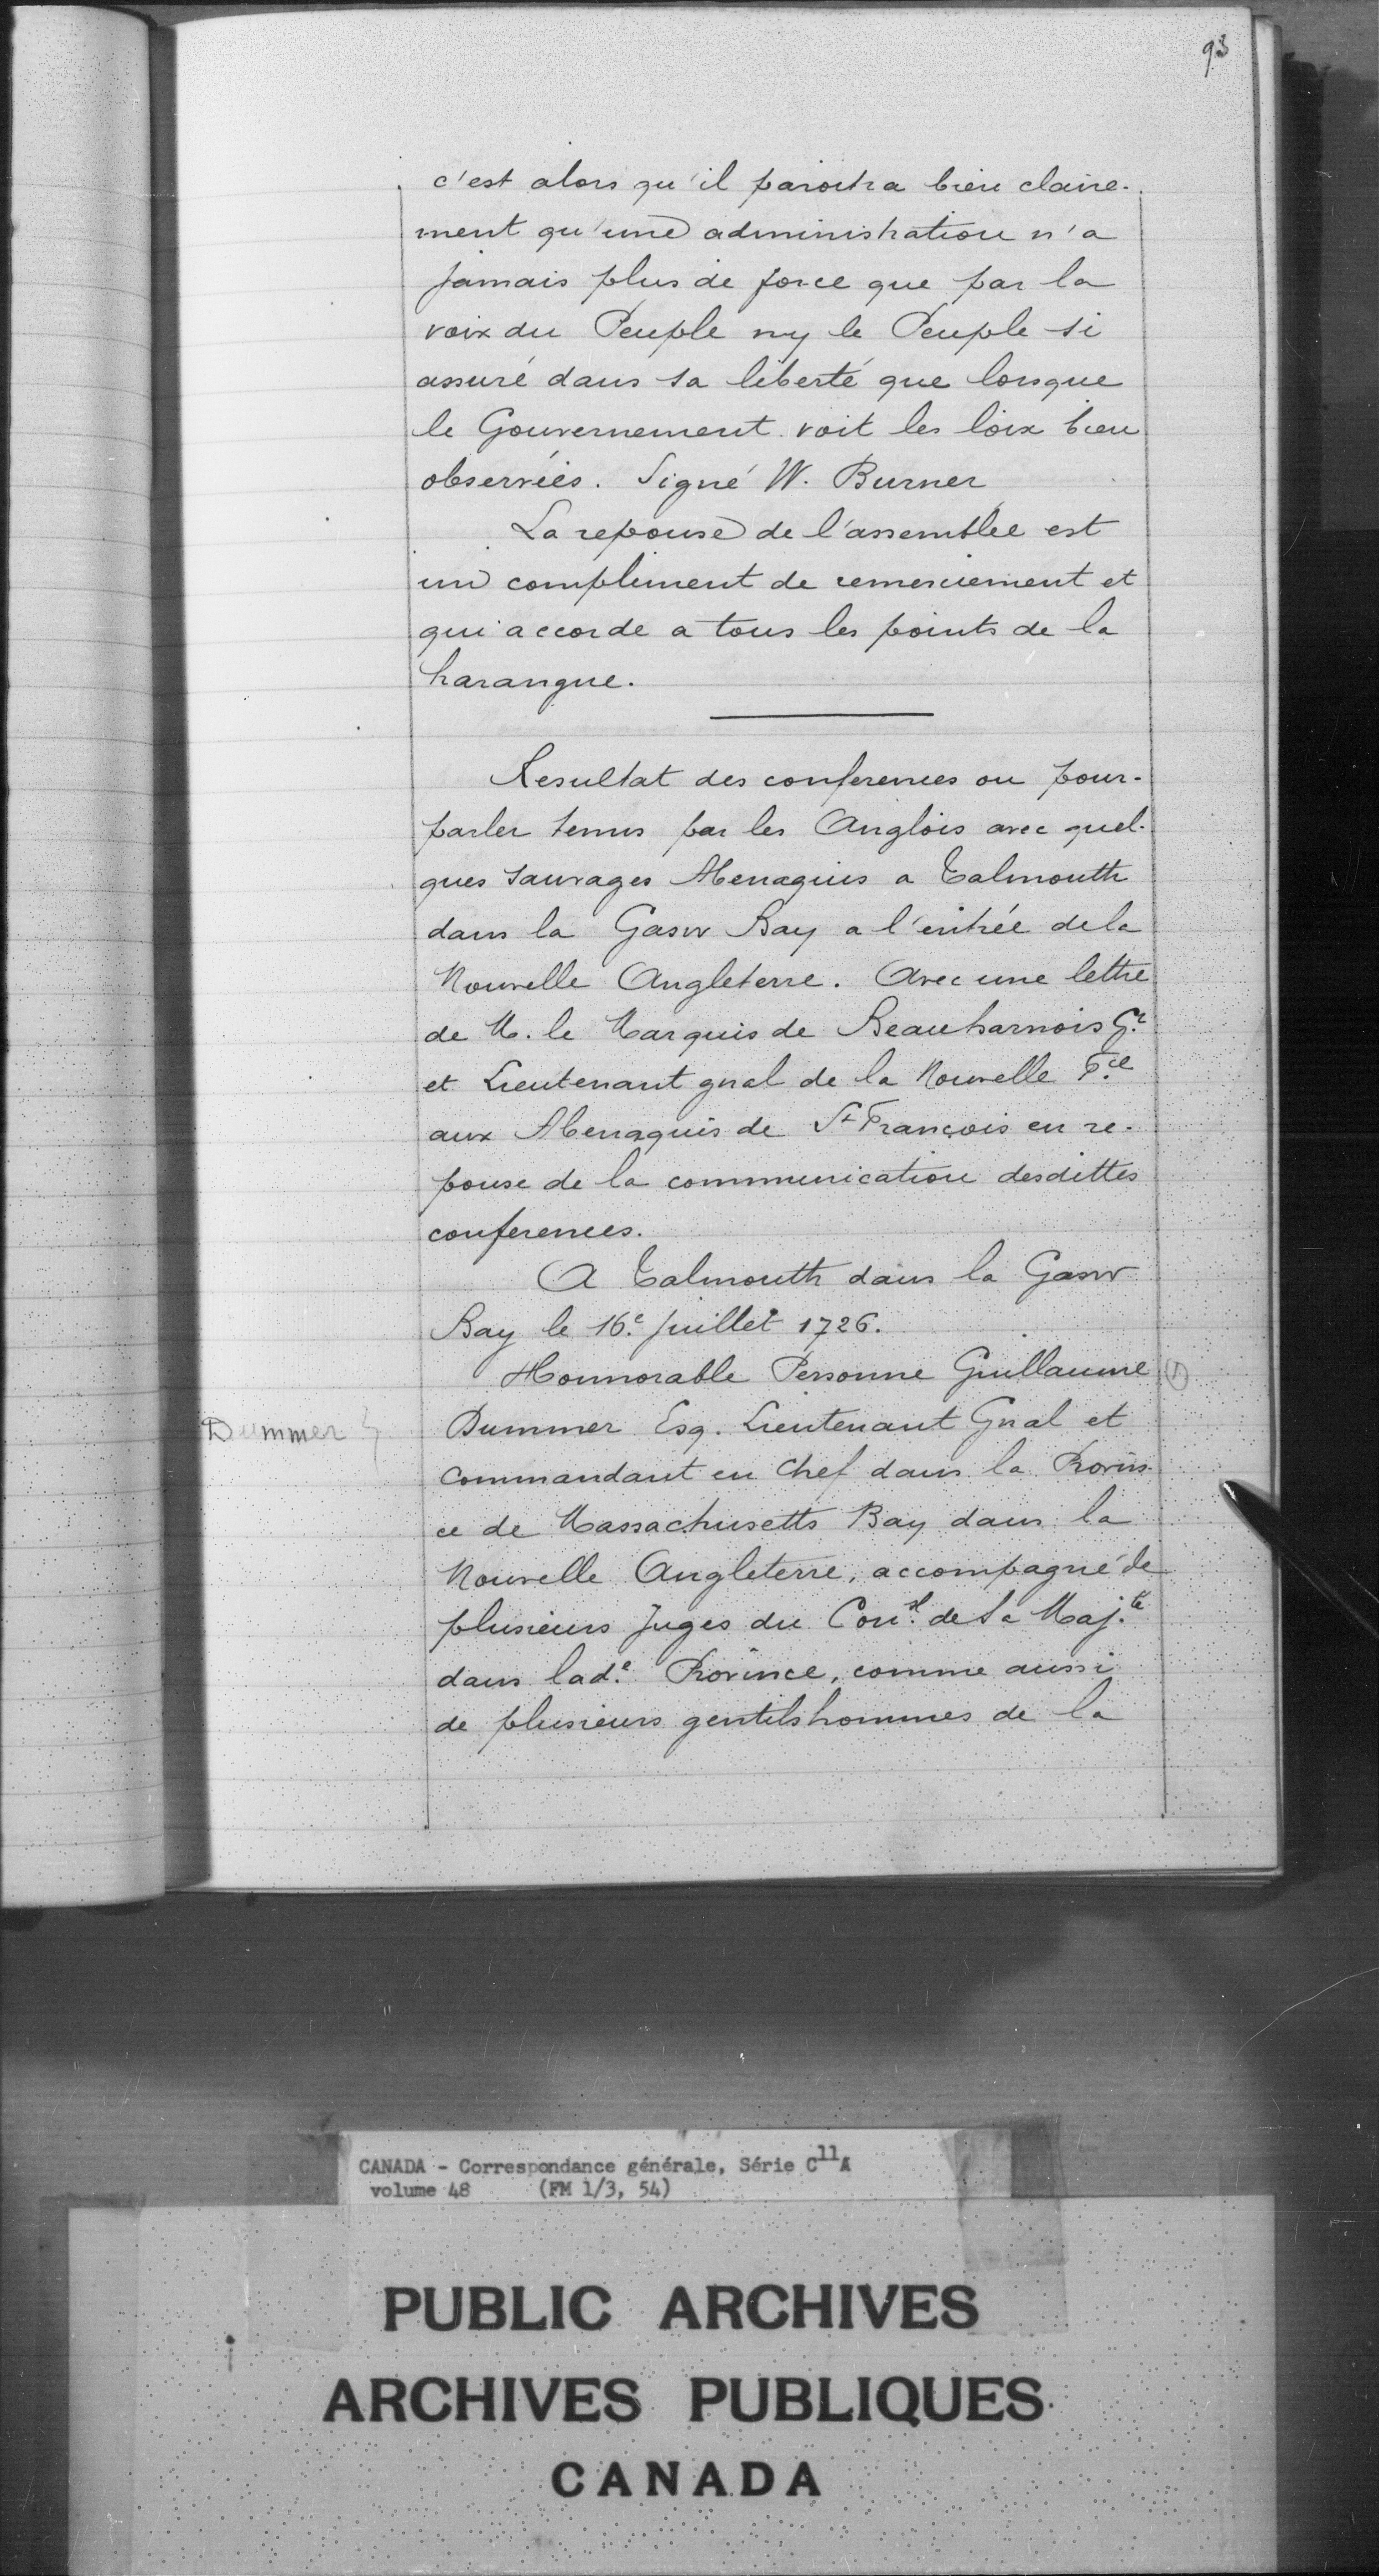 93
c'est alors qu'il paroitra bien claire-
ment qu'une administration n'a
jamais plus de force que par la
voix du Peuple ny le Peuple si
assuré dans sa liberté que lorsque
le Gouvernement voit les loix bien
observées. Signé W. Burner
La reponse de l'assemblée est
un compliment de remerciement et
qui accorde a tous les points de la
harangue.
Resultat des conferences ou pour-
parler tenus par les Anglois avec quel-
ques sauvages Abenaquis a Talmouth
dans la Gasw Bay a l'entrée de la
Nouvelle Angleterre. Avec une lettre
de M. le Marquis de Beauharnois Gr.
et Lieutenant gnal de la Nouvelle Fce.
aux Abenaquis de St François en re-
ponse de la communication desdittes
conferences.
A Talmouth dans la Gasw
Bay le 16e. juillet 1726.
Honnorable Personne Guillaume (1)
Dummer {
Dummer Esq. Lieutenant Gnal et
commandant en chef dans la Provin-
ce de Massachusetts Bay dans la
Nouvelle Angleterre, accompagné de
plusieurs Juges du Consl. de Sa Maj.té
dans lade. Province, comme aussi
de plusieurs gentilshommes de la
CANADA - Correspondance générale, Série C11A
volume 48 (FM 1/3, 54)
PUBLIC ARCHIVES
ARCHIVES PUBLIQUES
CANADA